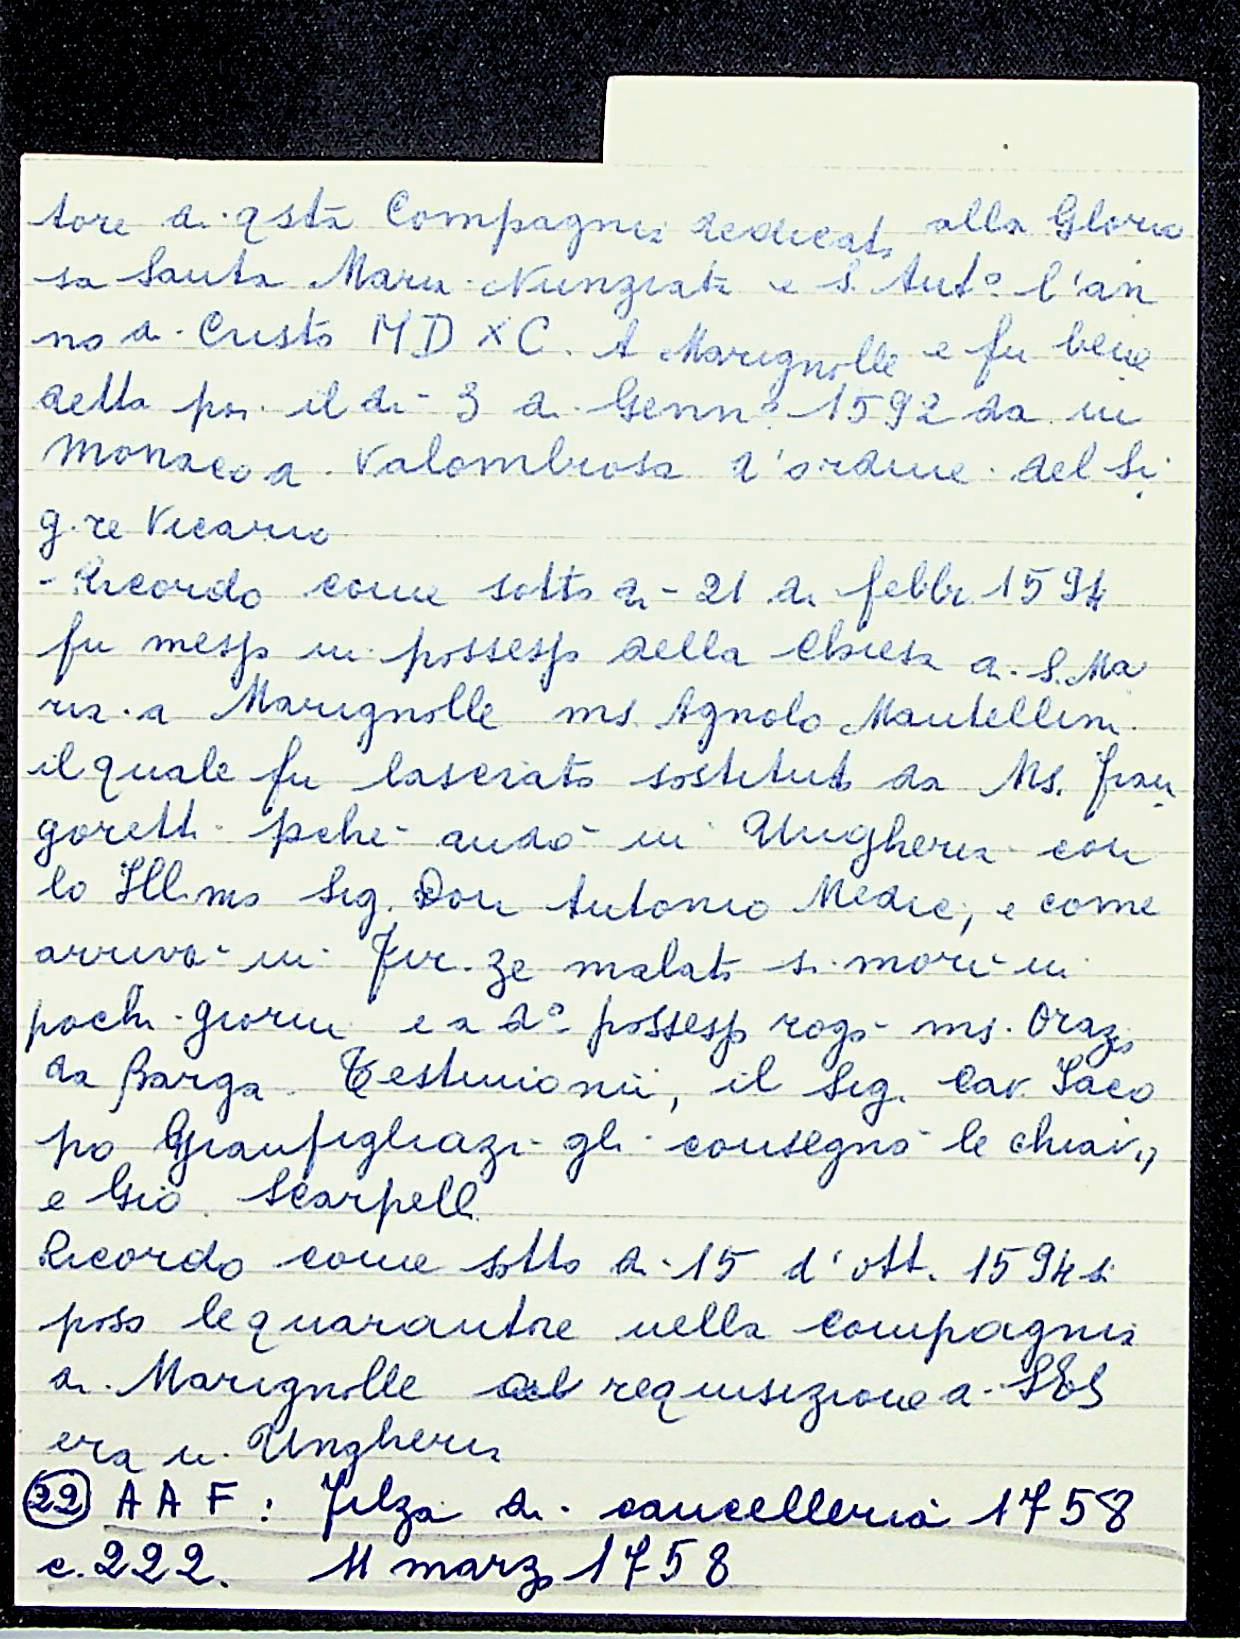 tore di qsta Compagnia dedicata alla Glorio
sa Santa Maria Nunziata e S. Ant° l'an
no di Cristo MDXC. A Marignolle e fu bene
detta poi il dì 3 di Genn° 1592 da un
Monaco di Valombrosa d'ordine del Si
g.re Vicario
- Ricordo come sotto dì 21 di febbr 1594
fu messo in possesso della Chiesa di S. Ma
ria a Marignolle ms. Agnolo Mantellini
il quale fu lasciato sostituto da Ms.
goretti pché andò in Ungheria con
lo Ill.mo Sig. Don Antonio Medici, e come
arrivò in Fir.ze malato si morì in
pochi giorni e a d° possesso rogò ms. Orazo
da Barga. Testimonii, il Sig. Cav. Iaco
po Gianfigliazi gli consegnò le chiavi,
e Gio. Scarpelli
Ricordo come sotto dì 15 d'ott. 1594 si
poso le quarantore nella compagnia
di Marignolle requisizione di
era in Ungheria
(22) A A F : Filza di cancelleria 1758
c. 222. 11 marzo 1758